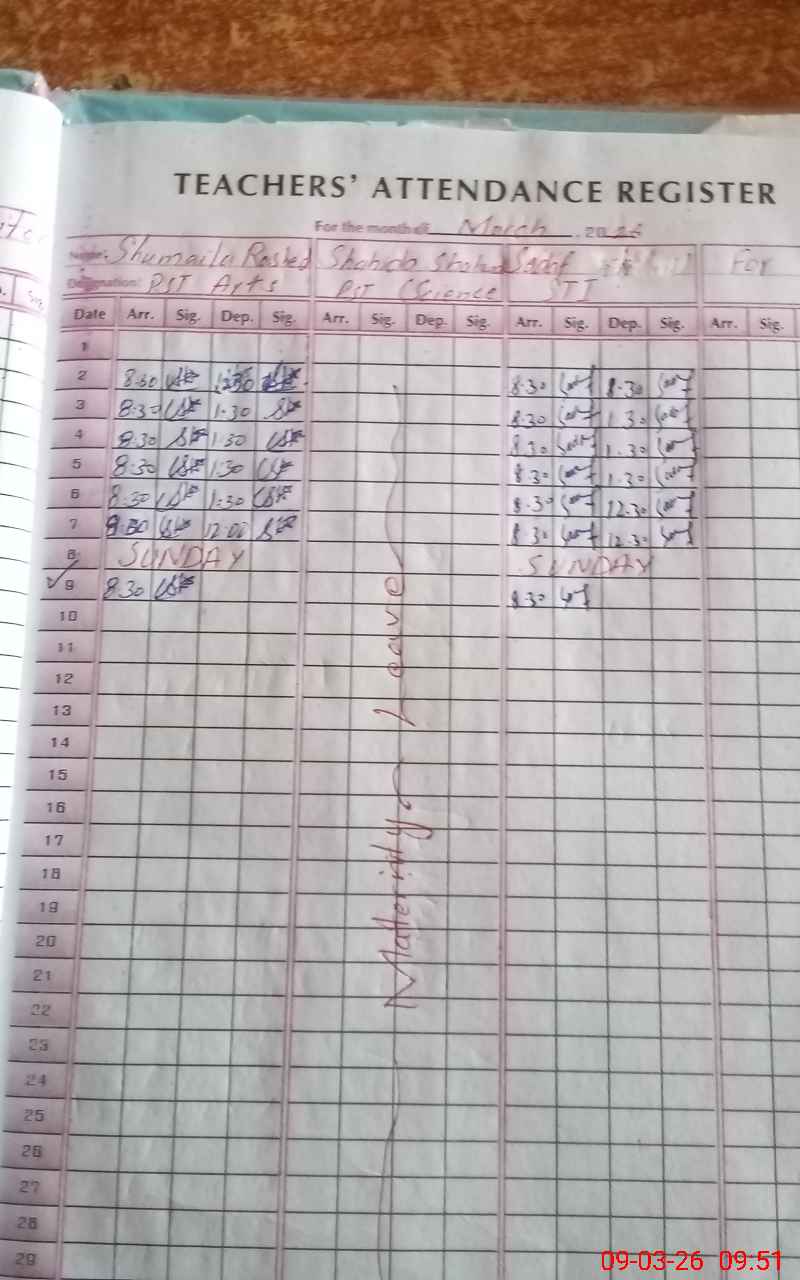 TEACHERS' ATTENDANCE REGISTER
For the month of March 2026
Name: Shumaila Rashed Shahida Sadaf For
Designation: PST Arts PST (Science STI
Date Arr. Sig. Dep. Sig. Arr. Sig. Dep. Sig. Arr. Sig. Dep. Sig. Arr. Sig.
1
2 8.30 1:30 8.30 8.30
3 8.30 1.30 8.30 1.30
4 8.30 1.30 8.30 1.30
5 8.30 1:30 8.30 1.30
6 8.30 1:30 8.30 12.30
7 8.30 12:00 8.30 12.30
8 SUNDAY SUNDAY
9 8.30 8.30
10
11
12
13
14
15
16
17
18
19
20
21
22
23
24
25
26
27
28
29
Matternity Leave
09-03-26 09:51